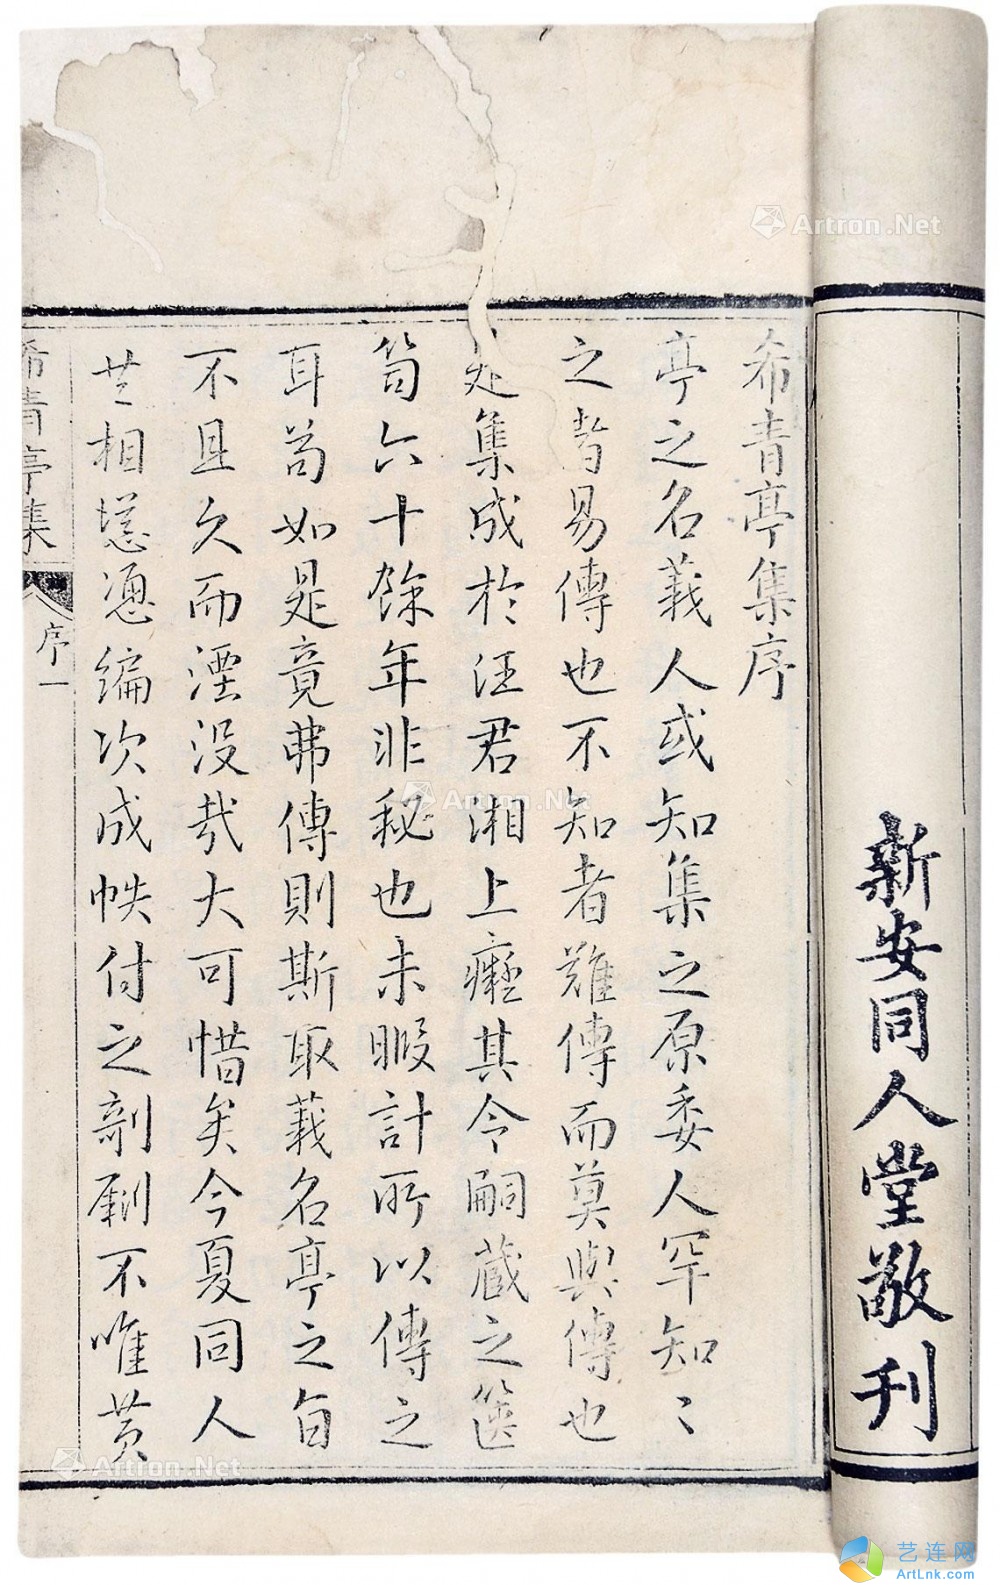 新安同人堂敬刊
希青亭集序
亭之名義人或知集之原委人罕知〻
之者易傳也不知者難傳而莫與傳也
集成於汪君湘上癡其令嗣藏之篋
笥六十餘年非秘也未暇計所以傳之
耳苟如是竟弗傳則斯取義名亭之旨
不且久而湮沒哉大可惜矣今夏同人
共相慫慂編次成帙付之剞劂不唯貫
希青亭集
序一
Artron.Net
Artron.Net
Artron.Net
艺连网
ArtLnk.com